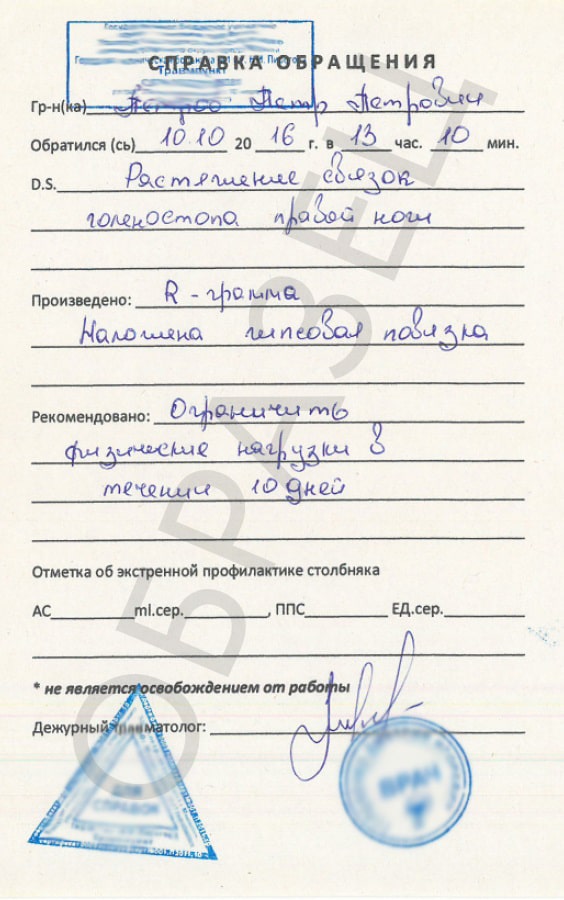 Травмпункт
СПРАВКА ОБРАЩЕНИЯ
Гр-н(ка) Петров Петр Петрович
Обратился (сь) 10.10 2016 г. в 13 час. 10 мин.
D.S. Растяжение связок
голеностопа правой ноги
Произведено: R-грамма
Наложена гипсовая повязка
Рекомендовано: Ограничить
физические нагрузки в
течении 10 дней
Отметка об экстренной профилактике столбняка
АС ml.сер. , ППС ЕД.сер.
* не является освобождением от работы
Дежурный травматолог:
ДЛЯ
СПРАВОК
ВРАЧ
ОБРАЗЕЦ